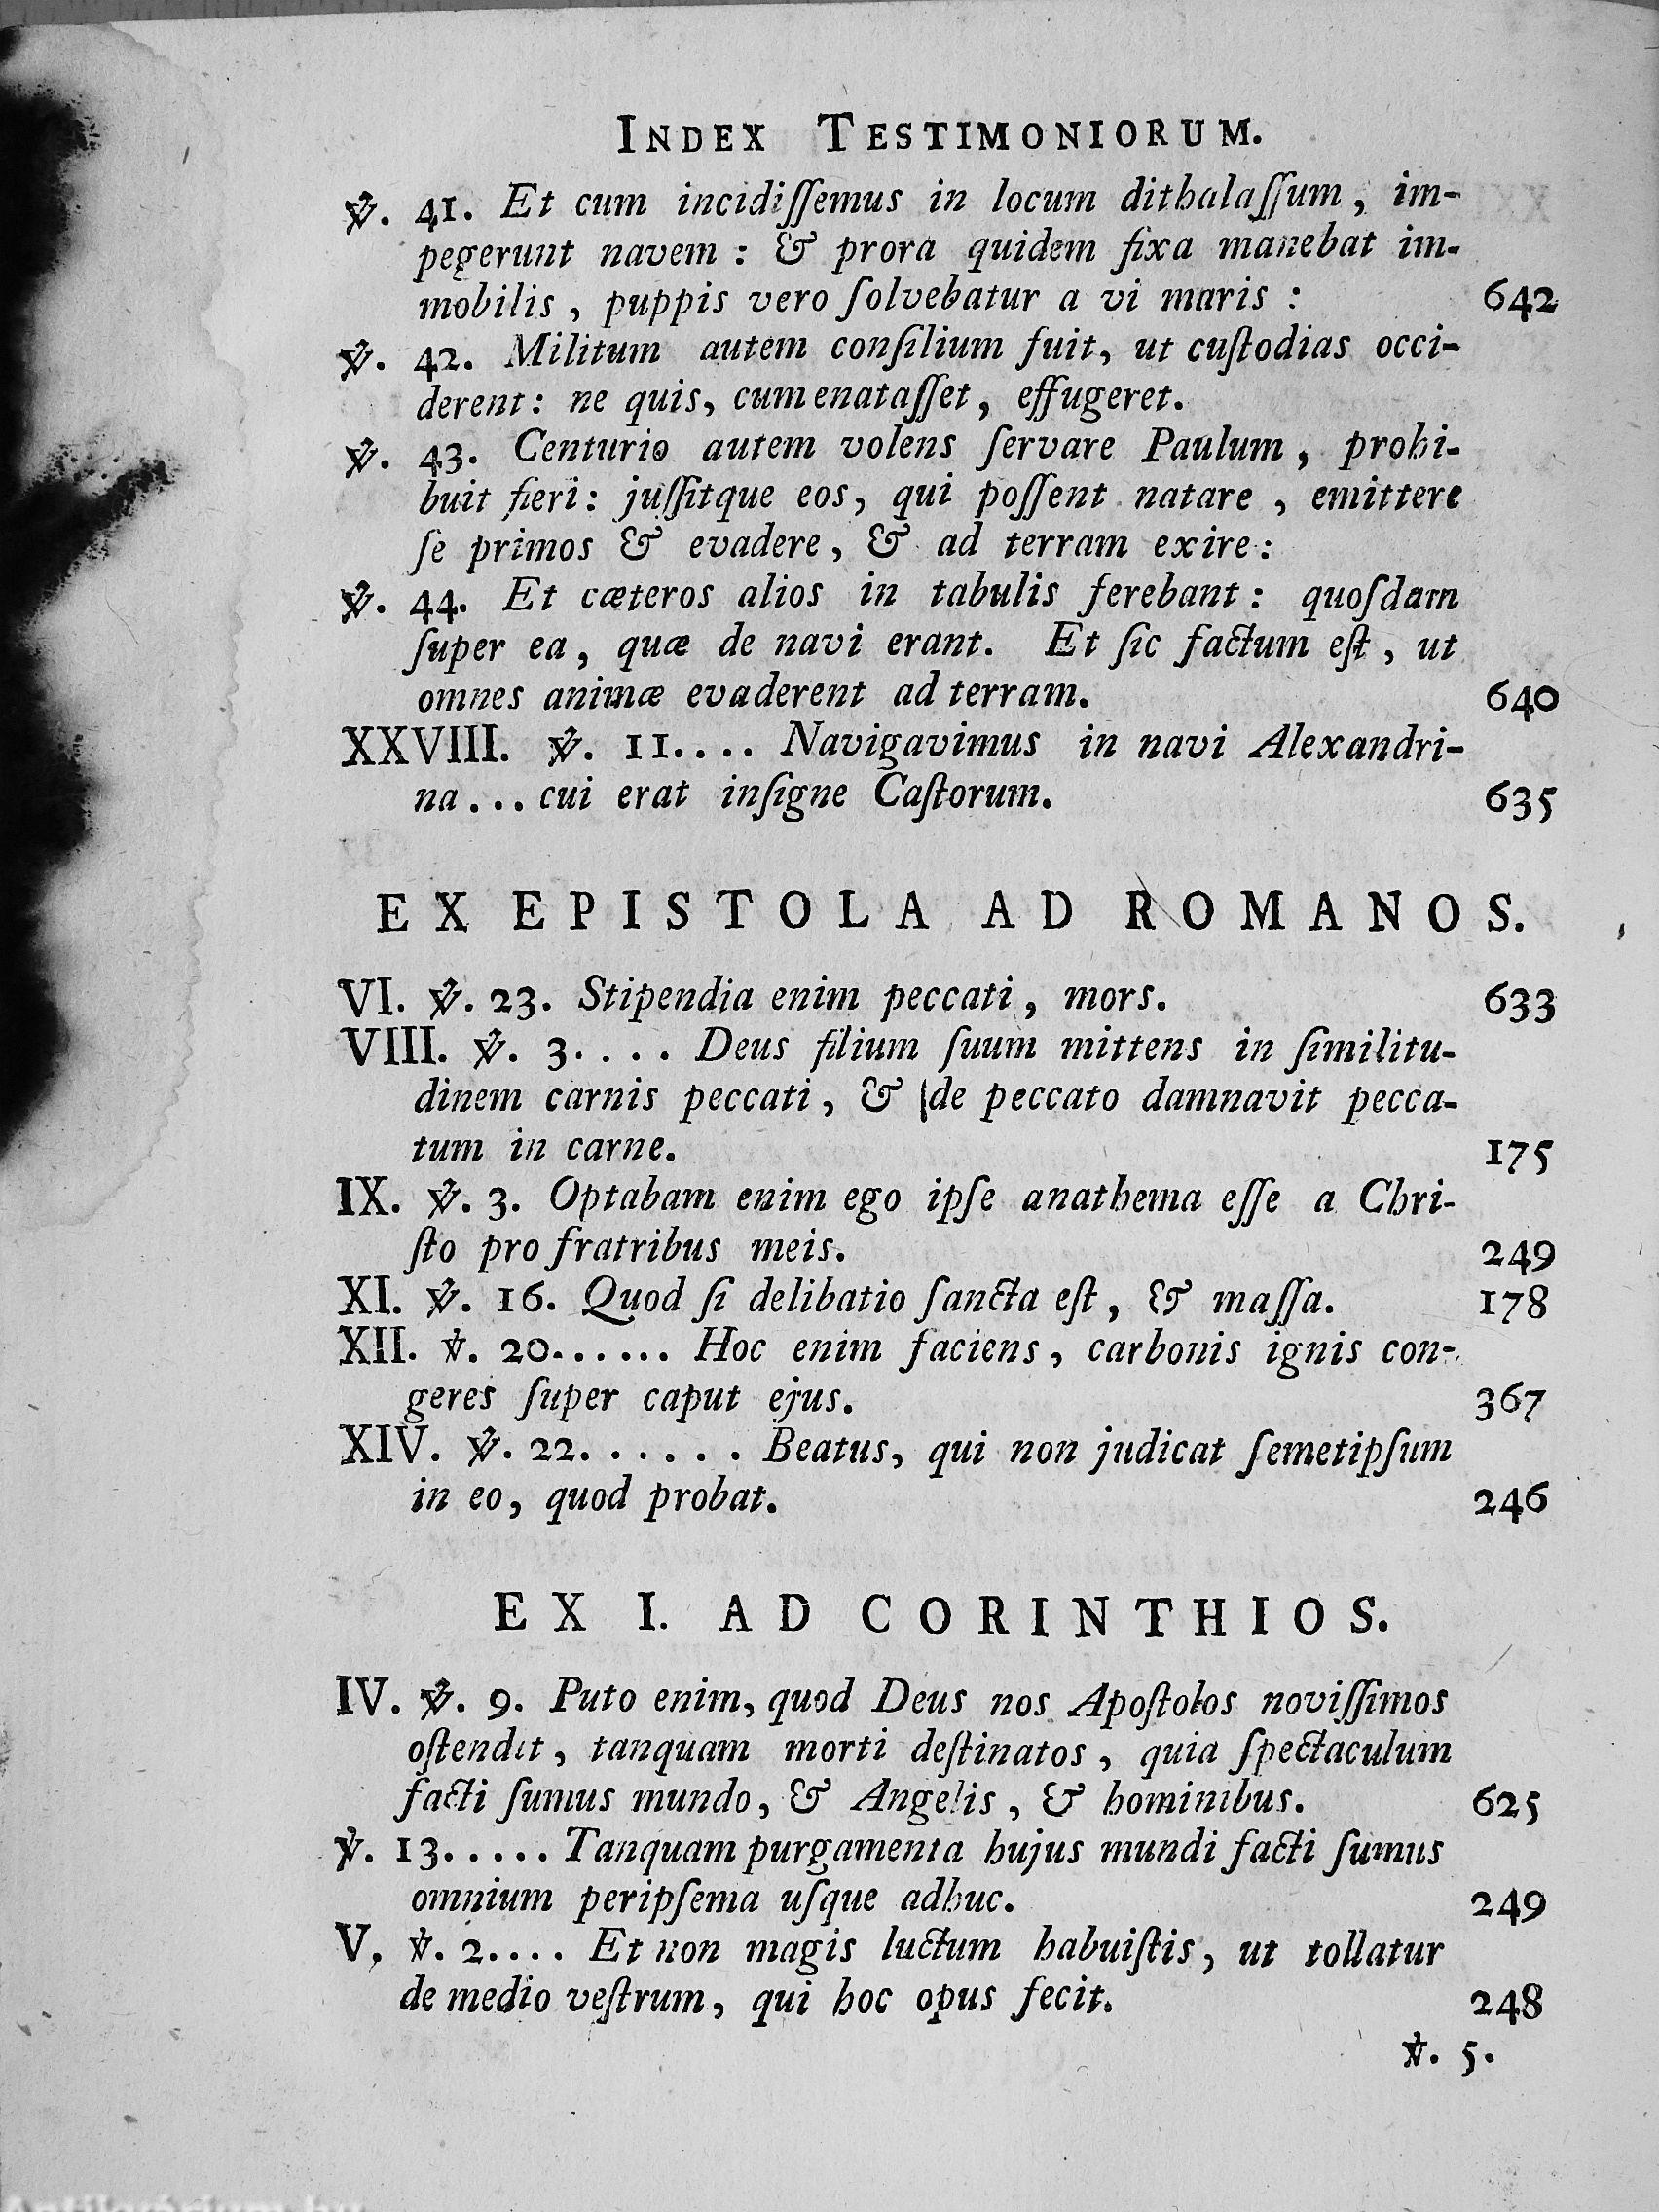 INDEX TESTIMONIORUM.
℣. 41. Et cum incidiſſemus in locum dithalaſſum, im-
pegerunt navem : & prora quidem fixa manebat im-
mobilis, puppis vero ſolvebatur a vi maris : 642
℣. 42. Militum autem conſilium fuit, ut cuſtodias occi-
derent: ne quis, cum enataſſet, effugeret.
℣. 43. Centurio autem volens ſervare Paulum, prohi-
buit fieri: juſſitque eos, qui poſſent natare, emittere
ſe primos & evadere, & ad terram exire:
℣. 44. Et cæteros alios in tabulis ferebant: quoſdam
ſuper ea, quæ de navi erant. Et ſic factum eſt, ut
omnes animæ evaderent ad terram. 640
XXVIII. ℣. 11.... Navigavimus in navi Alexandri-
na... cui erat inſigne Caſtorum. 635
EX EPISTOLA AD ROMANOS.
VI. ℣. 23. Stipendia enim peccati, mors. 633
VIII. ℣. 3.... Deus filium ſuum mittens in ſimilitu-
dinem carnis peccati, & de peccato damnavit pecca-
tum in carne. 175
IX. ℣. 3. Optabam enim ego ipſe anathema eſſe a Chri-
ſto pro fratribus meis. 249
XI. ℣. 16. Quod ſi delibatio ſancta eſt, & maſſa. 178
XII. ℣. 20...... Hoc enim faciens, carbonis ignis con-
geres ſuper caput ejus. 367
XIV. ℣. 22...... Beatus, qui non judicat ſemetipſum
in eo, quod probat. 246
EX I. AD CORINTHIOS.
IV. ℣. 9. Puto enim, quod Deus nos Apoſtolos noviſſimos
oſtendit, tanquam morti deſtinatos, quia ſpectaculum
facti ſumus mundo, & Angelis, & hominibus. 625
℣. 13..... Tanquam purgamenta hujus mundi facti ſumus
omnium peripſema uſque adhuc. 249
V, ℣. 2.... Et non magis luctum habuiſtis, ut tollatur
de medio veſtrum, qui hoc opus fecit. 248
℣. 5.